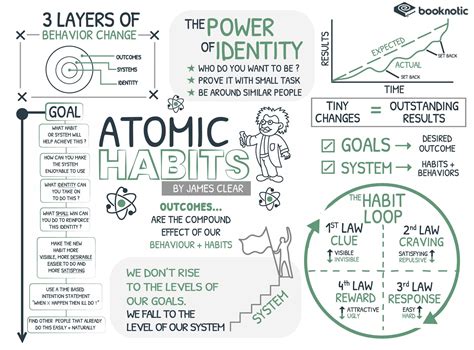 3 LAYERS OF
BEHAVIOR CHANGE
OUTCOMES
SYSTEMS
IDENTITY
THE POWER
OF IDENTITY
★ WHO DO YOU WANT TO BE ?
★ PROVE IT WITH SMALL TASK
★ BE AROUND SIMILAR PEOPLE
booknotic
RESULTS
TIME
EXPECTED
ACTUAL
SET BACK
SET BACK
TINY
CHANGES
=
OUTSTANDING
RESULTS
GOALS → DESIRED
OUTCOME
SYSTEM → HABITS +
BEHAVIORS
GOAL
WHAT HABIT
OR SYSTEM WILL
HELP ACHIEVE THIS ?
HOW CAN YOU MAKE
THE SYSTEM
ENJOYABLE OR EASIER
WHAT IDENTITY CAN
YOU TAKE ON
TO DO THIS
WHAT SMALL WIN CAN
YOU DO TO REINFORCE
THIS IDENTITY ?
MAKE THE NEW
HABIT MORE
VISIBLE, MORE DESIRABLE
EASIER TO DO AND
MORE SATISFYING
USE A TIME BASED
INTENTION STATEMENT
"WHEN X HAPPEN THEN ILL DO Y"
FIND OTHER PEOPLE THAT ALREADY
DO THIS EASILY + NATURALLY
ATOMIC
HABITS
BY JAMES CLEAR
OUTCOMES...
ARE THE COMPOUND
EFFECT OF OUR
BEHAVIOUR + HABITS
WE DON'T RISE
TO THE LEVELS OF
OUR GOALS.
WE FALL TO THE
LEVEL OF OUR SYSTEM
SYSTEM
THE HABIT
LOOP
1ST LAW
CLUE
↑ VISIBLE
↓ INVISIBLE
2ND LAW
CRAVING
SATISFYING ↑
REPULSIVE ↓
4TH LAW
REWARD
↑ ATTRACTIVE
↓ UGLY
3RD LAW
RESPONSE
EASY ↑
HARD ↓